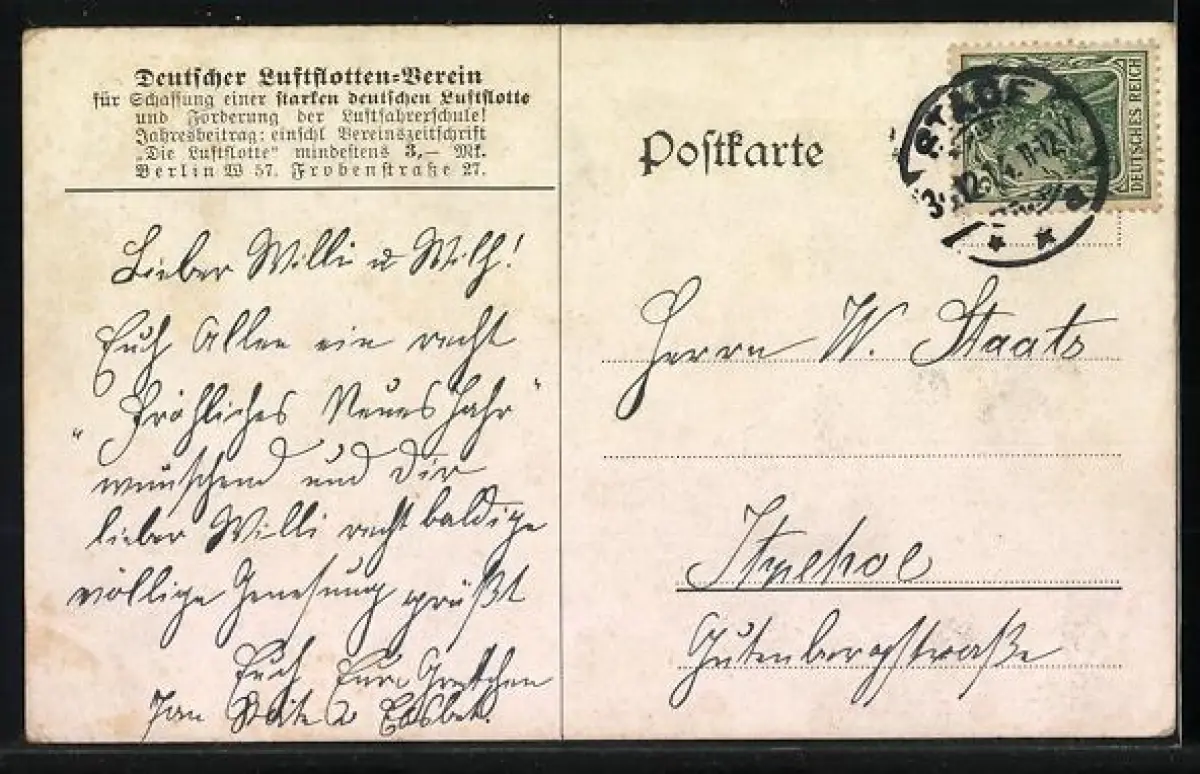 Deutscher Luftflotten-Verein
für Schaffung einer starken deutschen Luftflotte
und Förderung der Luftfahrerschule!
Jahresbeitrag: einschl Vereinszeitschrift
„Die Luftflotte" mindestens 3,— Mk.
Berlin W 57. Frobenstraße 27.
Postkarte
DEUTSCHES REICH
STADE
Lieber Willi u
Euch Allen ein recht
„Fröhliches Neues Jahr"
wünschend und dir
lieber Willi recht baldige
völlige Genesung grüßt
Euch Eure Gretchen
Herrn W. Staats
Itzehoe
Gutenbergstraße